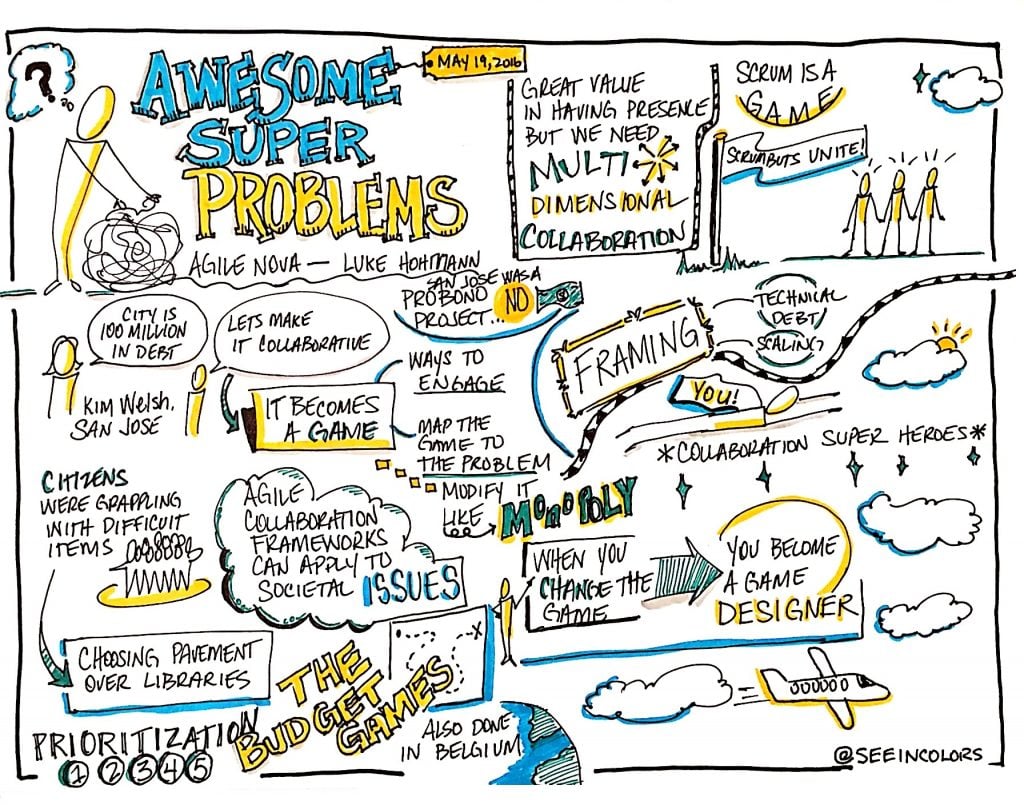 ?
AWESOME
SUPER
PROBLEMS
MAY 19, 2016
AGILE NOVA — LUKE HOHMANN
GREAT VALUE
IN HAVING PRESENCE
BUT WE NEED
MULTI
DIMENSIONAL
COLLABORATION
SCRUM IS A
GAME
SCRUMBUTS UNITE!
CITY IS
100 MILLION
IN DEBT
KIM WELSH,
SAN JOSE
LETS MAKE
IT COLLABORATIVE
SAN JOSE WAS A
PROBONO
PROJECT... NO $
IT BECOMES
A GAME
WAYS TO
ENGAGE
MAP THE
GAME TO
THE PROBLEM
MODIFY IT
LIKE
MONOPOLY
FRAMING
TECHNICAL
DEBT
SCALING
YOU!
*COLLABORATION SUPER HEROES*
CITIZENS
WERE GRAPPLING
WITH DIFFICUIT
ITEMS
AGILE
COLLABORATION
FRAMEWORKS
CAN APPLY TO
SOCIETAL ISSUES
WHEN YOU
CHANGE THE
GAME
YOU BECOME
A GAME
DESIGNER
CHOOSING PAVEMENT
OVER LIBRARIES
THE
BUDGET
GAMES
X
PRIORITIZATION
1 2 3 4 5
ALSO DONE
IN BELGIUM
@SEEINCOLORS